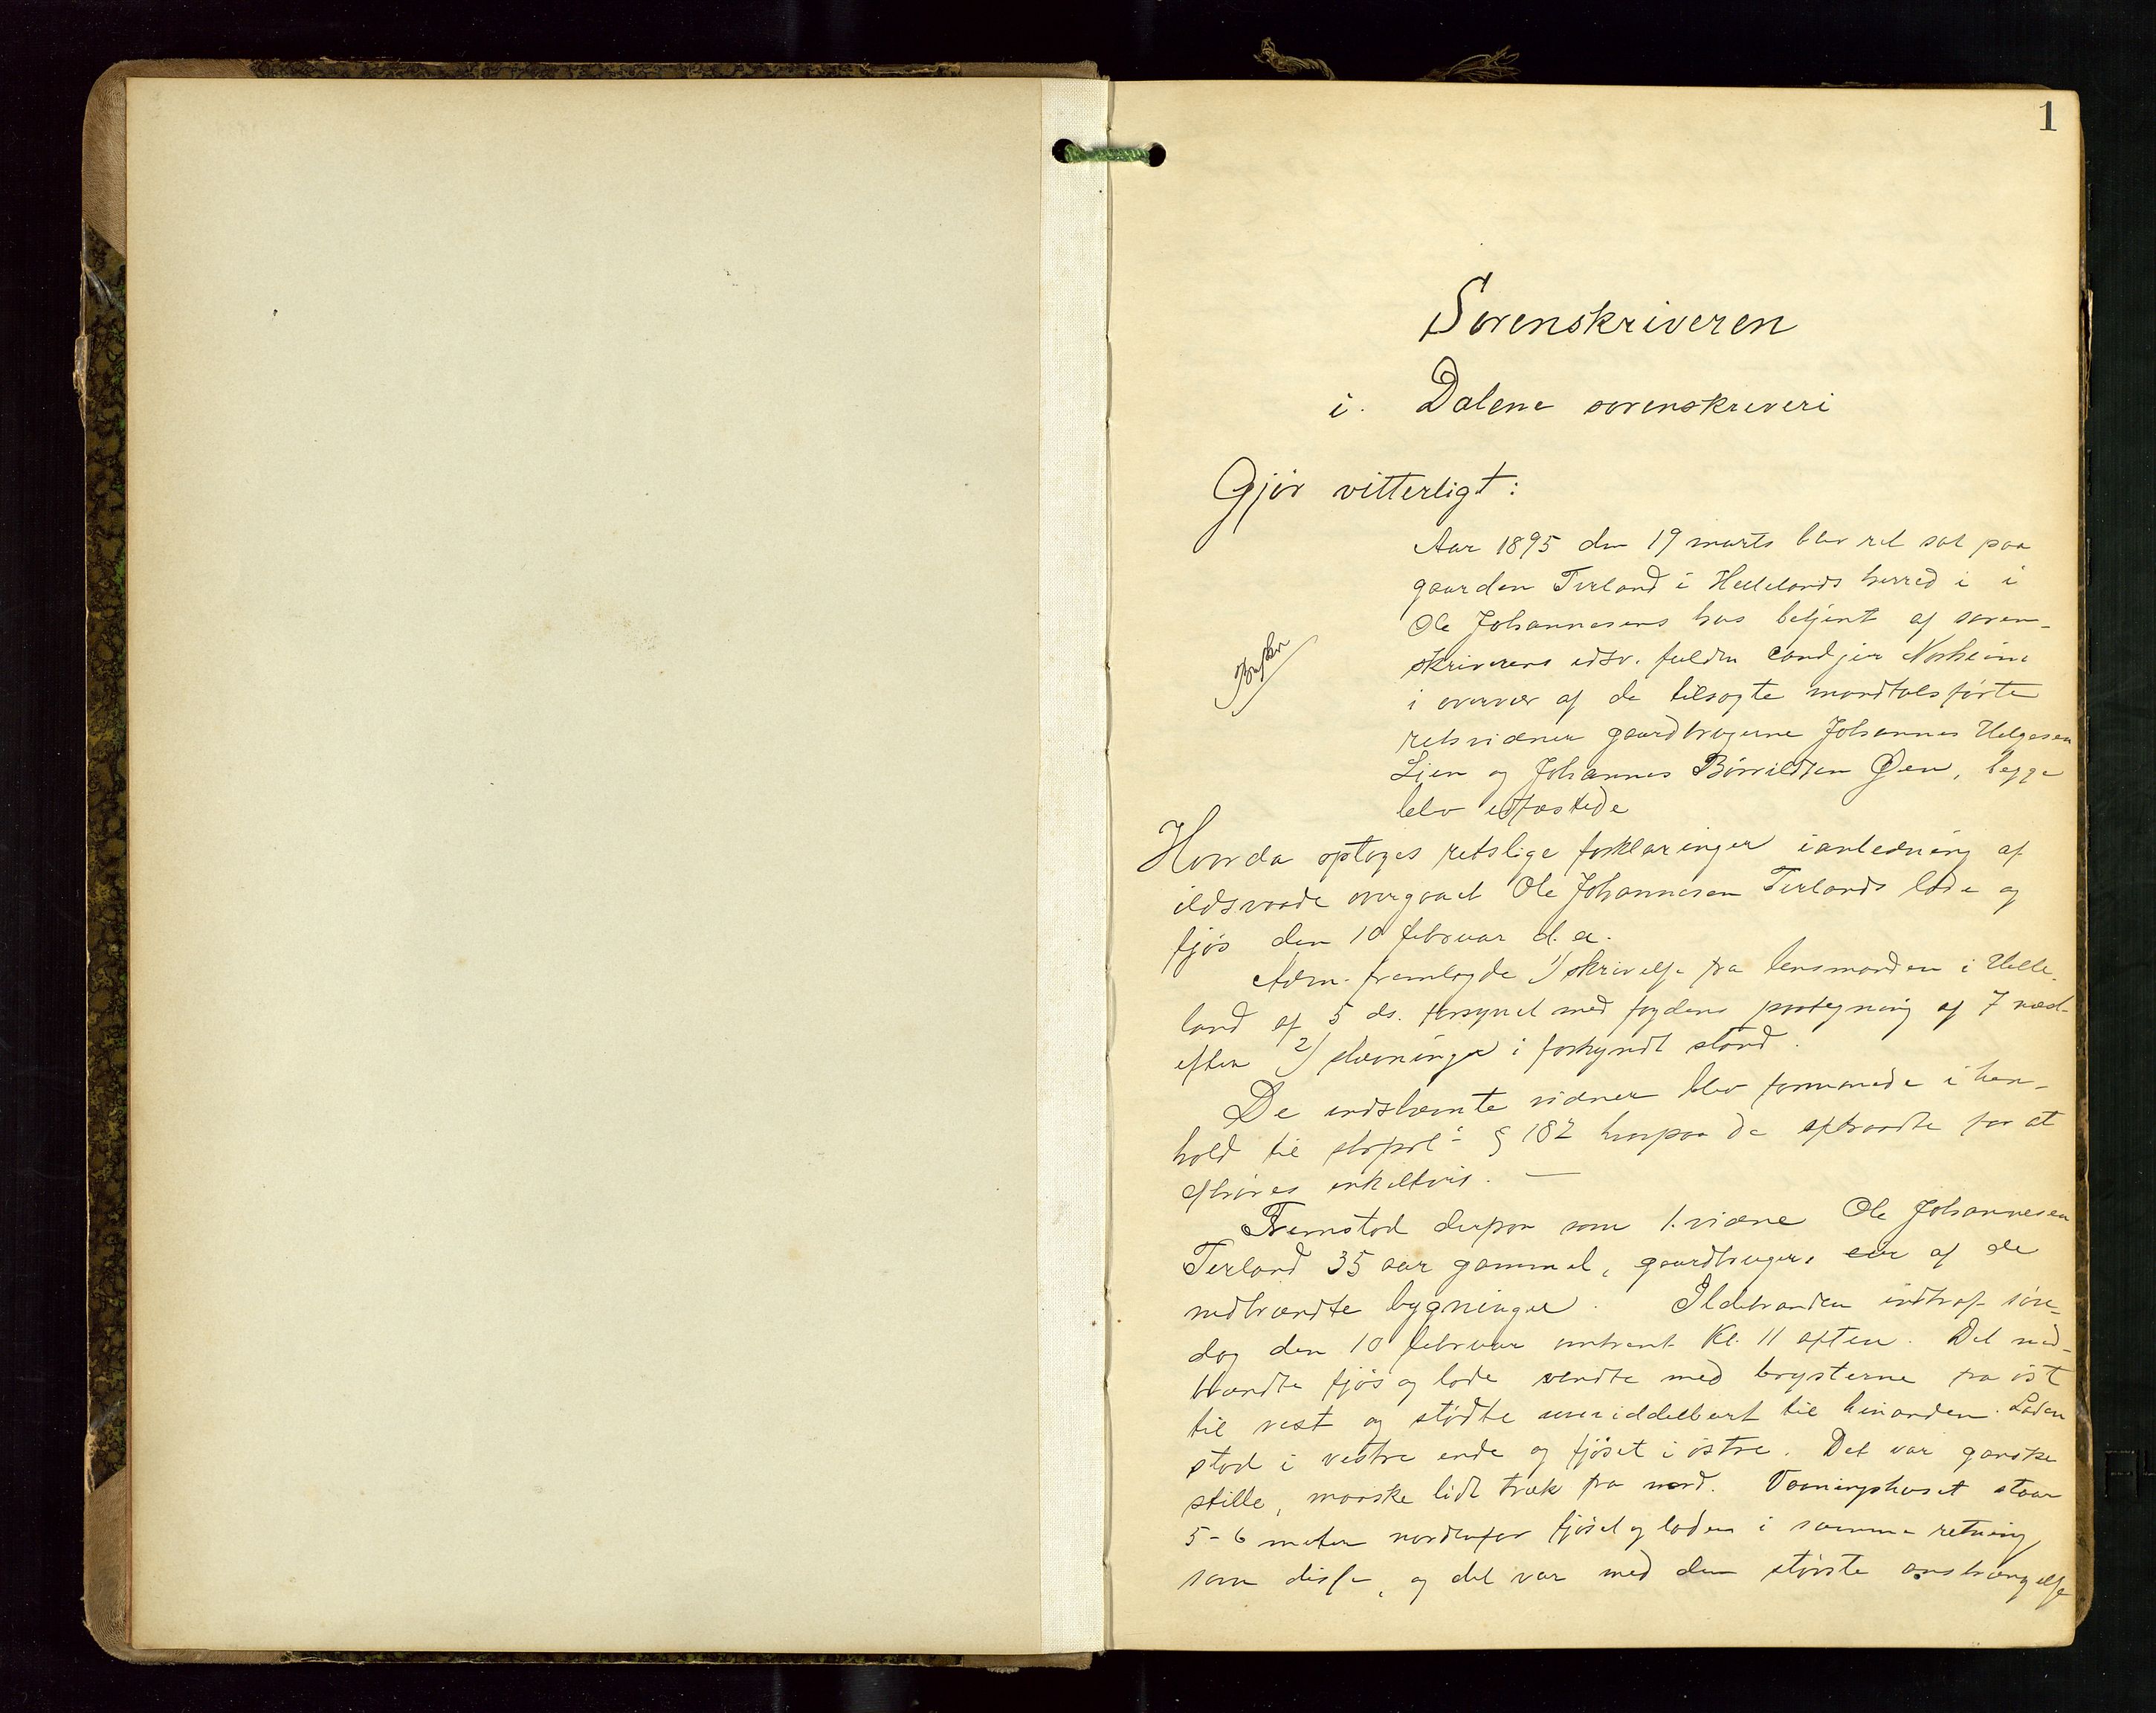 1
Sorenskriveren
i. Dalene sorenskriveri
Gjör vitterligt:
Aar 1895 den 19 marts blev ret sat paa
gaarden Terland i Hellelands herred i i
Ole Johannesens hus betjent af soren-
skriverens edsv. fuldm cand jur Norheim
i overvær af de tilsagte mandtalsførte
retsvidner gaardbrugerne Johannes Helgesen
Lien og Johannes Børrildsen Øen, begge
blev edfæstede
Hvorda optoges retslige forklaringer ianledning af
ildsvaade overgaaet Ole Johannesen Terlands lade og
fjøs den 10 februar d. a.
Adm. fremlagde 1) skrivelse fra lensmanden i Helle-
land af 5 ds. forsynet med fogdens paategning af 7 næst-
efter 2) stævninger i forkyndt stand.
De indstævnte vidner blev formanede i hen-
hold til § 182 hvorpaa de aftraadte for at
afhøres enkeltvis. —
Fremstod derpaa som 1. vidne Ole Johannesen
Terland 35 aar gammel, gaardbruger, eier af de
nedbrændte bygninger. Ildebranden indtraf søn-
dag den 10 februar omtrent Kl. 11 aften. Det ned-
brændte fjøs og lade vendte med brysterne fra øst
til vest og stødte umiddelbart til hinanden. Laden
stod i vestre ende og fjøset i østre. Det var ganske
stille, maaske lidt træk fra nord. Vaaningshuset staar
5-6 meter nordenfor fjøset og laden i samme retning
som disse, og det var med den største anstrængelse